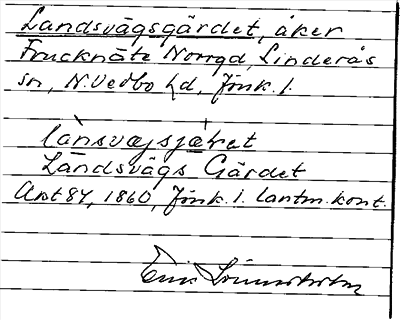 Landsvägsgärdet, åker
Frucknäte Norrgd, Linderås
sn, N. Vedbo hd, Jönk. l.
lànsvæjsjæ̀ret
Landsvägs Gärdet
Akt 84, 1860, Jönk. l. lantm. kont.
Eric